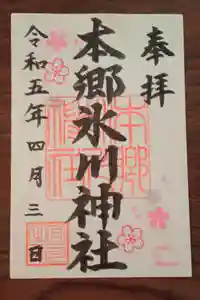 奉拝
本郷氷川神社
令和五年四月三日